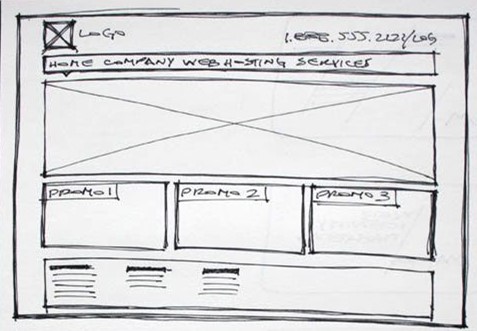 LOGO
1.888.555.2121/LOG
HOME COMPANY WEB HOSTING SERVICES
PROMO 1 PROMO 2 PROMO 3